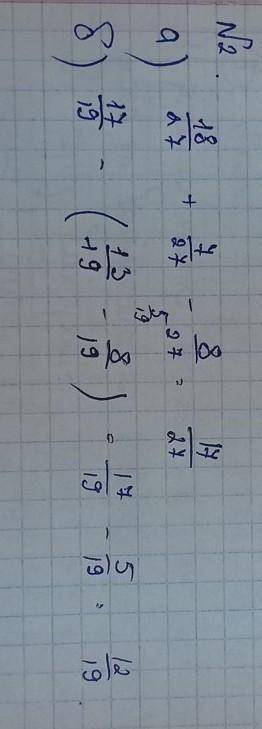 №2.
а) 18/27 + 7/27 - 8/27 = 17/27
5/19
б) 17/19 - (13/19 - 8/19) = 17/19 - 5/19 = 12/19